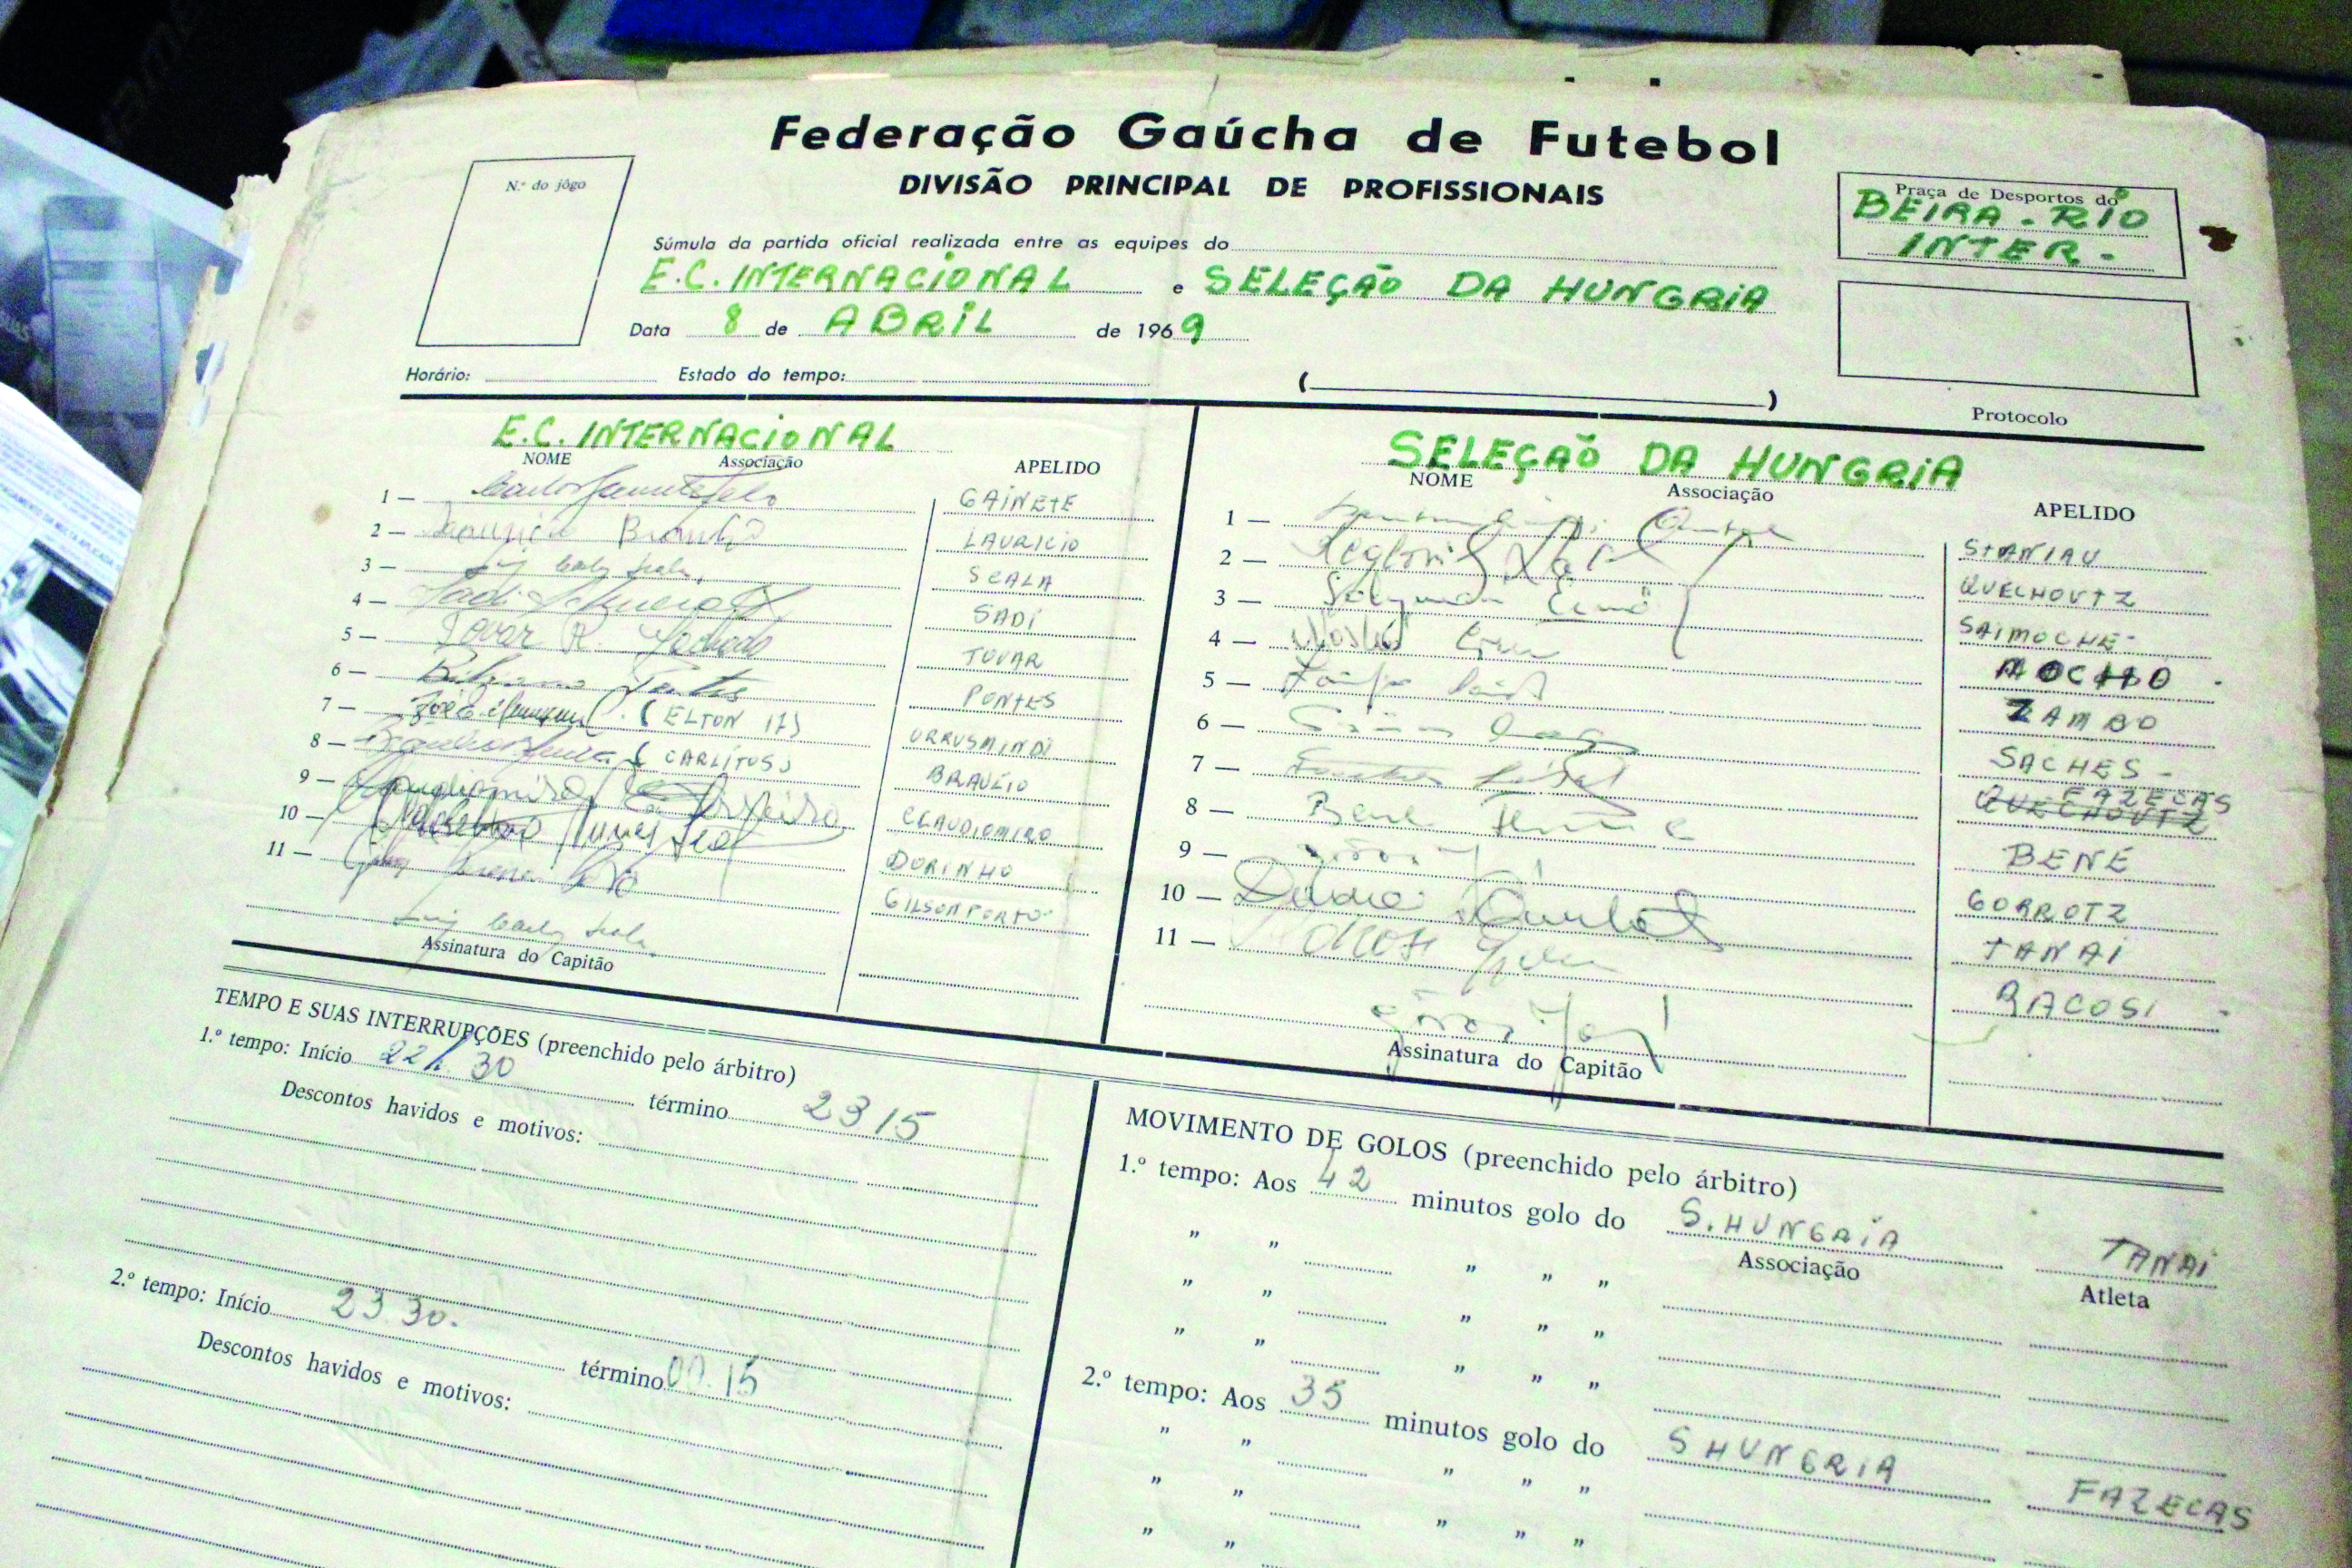 Federação Gaúcha de Futebol
DIVISÃO PRINCIPAL DE PROFISSIONAIS
N.º do jôgo
Praça de Desportos do
BEIRA-RIO
INTER-
Súmula da partida oficial realizada entre as equipes do
E.C. INTERNACIONAL e SELEÇÃO DA HUNGRIA
Data 8 de ABRIL de 1969
Horário: Estado do tempo: ( )
Protocolo
E.C. INTERNACIONAL
NOME Associação APELIDO
1 — GAINETE
2 — LAURICIO
3 — Luiz Carlos Scala SCALA
4 — Sadi SADI
5 — Tovar R. TOVAR
6 — Pontes PONTES
7 — (ELTON 17) URRUSMINDI
8 — (CARLITOS) BRAULIO
9 — Claudiomiro CLAUDIOMIRO
10 — DORINHO
11 — GILSON PORTO
Luiz Carlos Scala
Assinatura do Capitão
SELEÇÃO DA HUNGRIA
NOME Associação APELIDO
1 — STANIAU
2 — QUECHOUTZ
3 — SAIMOCHE-
4 — MOCHO -
5 — ZAMBO
6 — SACHES -
7 — QUECHOUTZ FAZECAS
8 — Bene Ferenc BENE
9 — GORROTZ
10 — TANAI
11 — RACOSI -
Assinatura do Capitão
TEMPO E SUAS INTERRUPÇÕES (preenchido pelo árbitro)
1.º tempo: Início 22h.30 término 23 15
Descontos havidos e motivos:
2.º tempo: Início 23.30. término 00.15
Descontos havidos e motivos:
MOVIMENTO DE GOLOS (preenchido pelo árbitro)
1.º tempo: Aos 42 minutos golo do S. HUNGRIA TANAI
Associação Atleta
" " " " "
" " " " "
" " " " "
2.º tempo: Aos 35 minutos golo do S HUNGRIA FAZECAS
" " " " "
" " " " "
" "